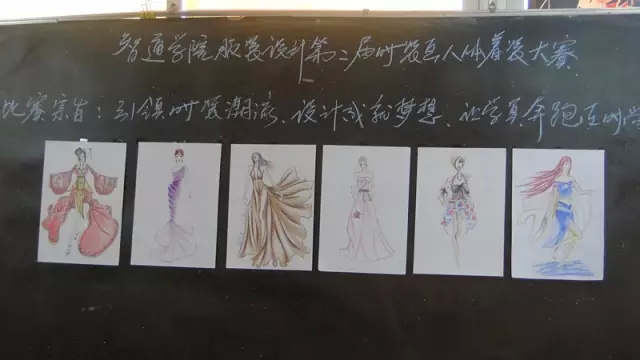 智通学院服装设计第二届时装画人体着装大赛
比赛宗旨：引领时装潮流、设计成就梦想、让学员奔跑在时尚